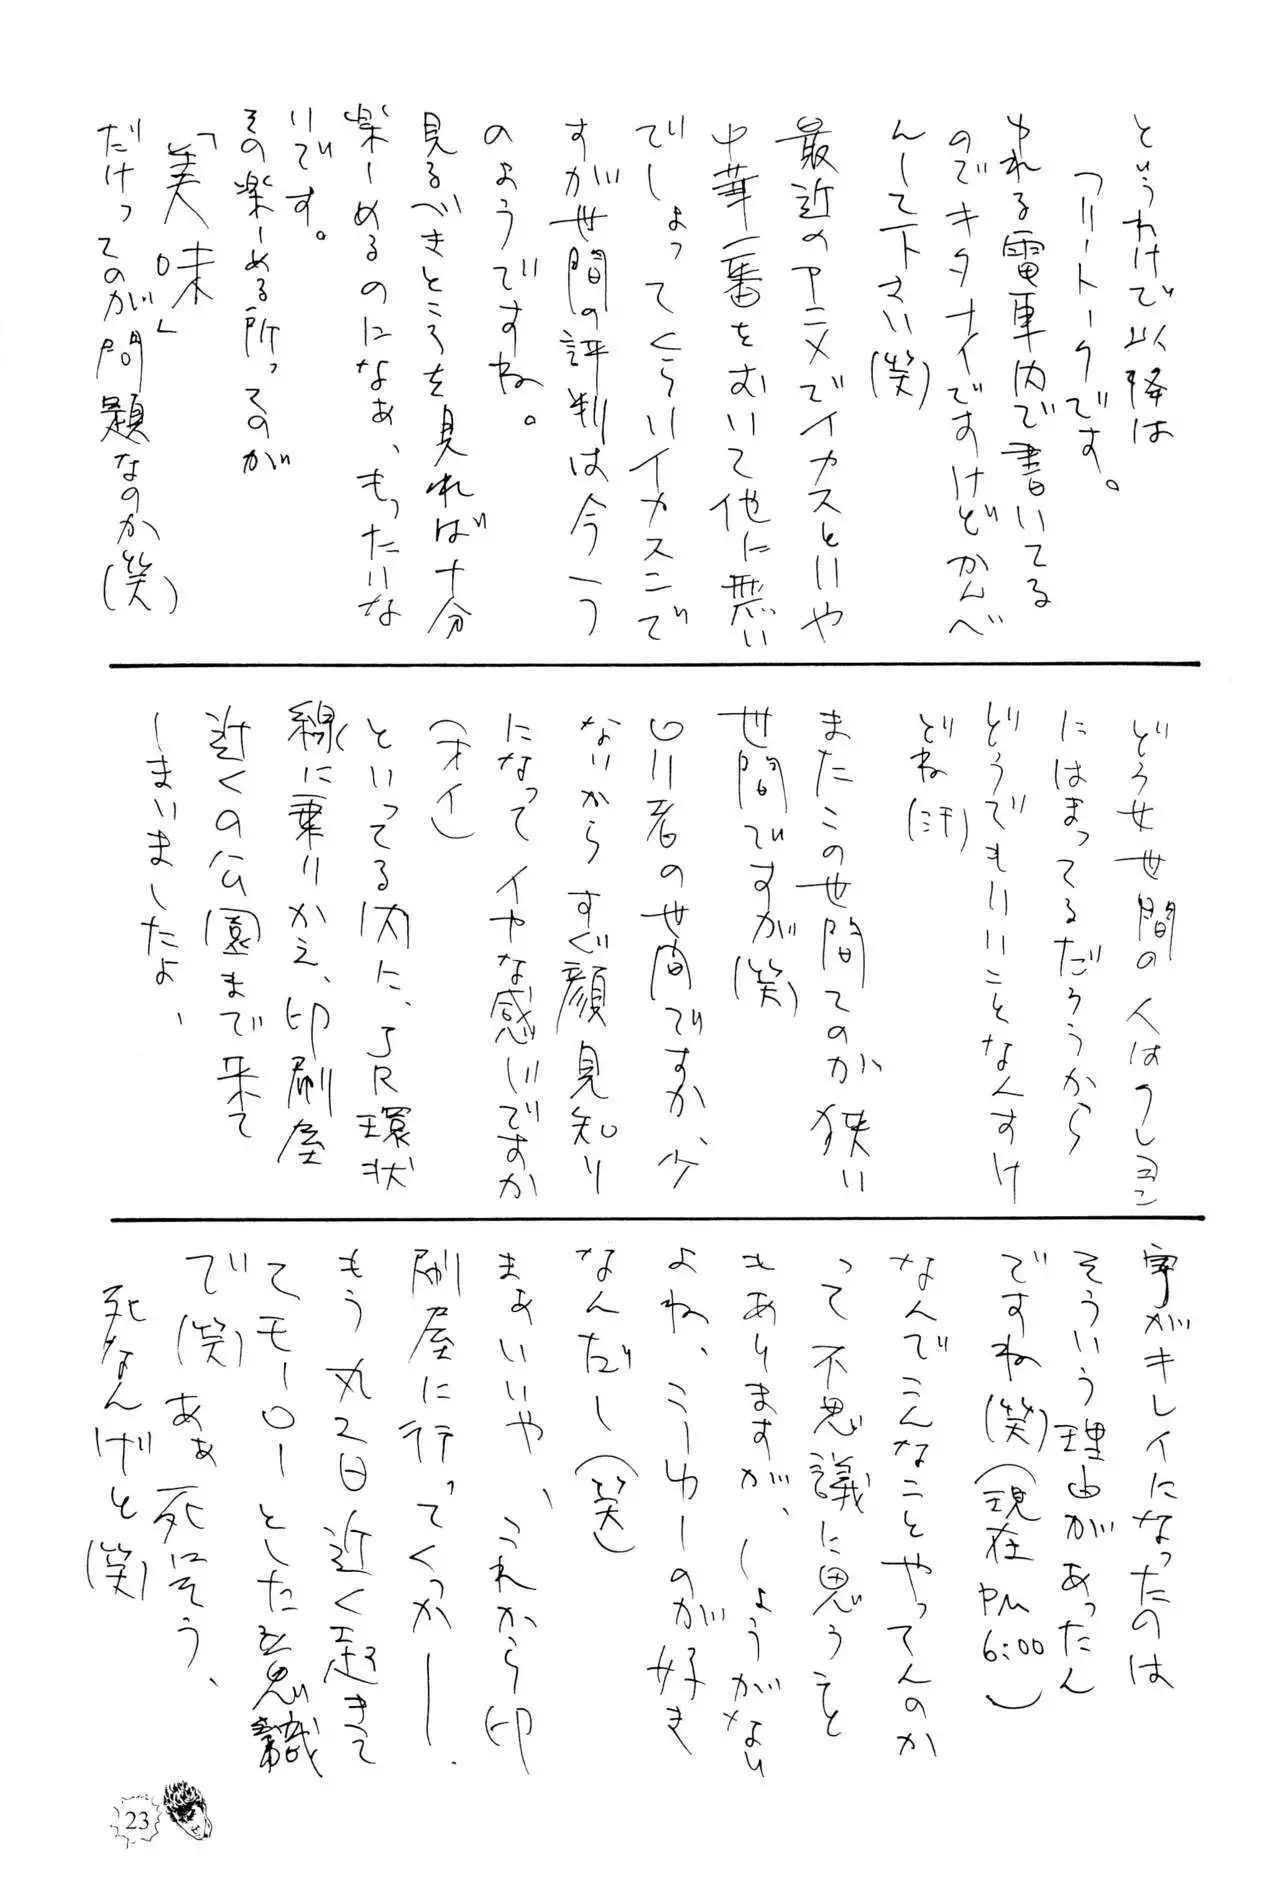 というわけで以降は
フリートークです。
ゆれる電車内で書いてる
のでキタナイですけどかんべ
んして下さい(笑)
最近のアニメでイカスといや
中華一番をおいて他に悪い
でしょってくらいイカスんで
すが世間の評判は今一つ
のようですね。
見るべきところを見れば十分
楽しめるのになぁ、もったいな
いです。
その楽しめる所ってのが
「美味」
だけってのが問題なのか(笑)
どうせ世間の人はクレヨン
にはまってるだろうから
どうでもいいことなんすけ
どね(汗)
またこの世間てのが狭い
世間ですが(笑)
ロリ者の世間ですか、少
ないからすぐ顔見知り
になってイヤな感じですか
(オイ)
といってる内に、JR環状
線に乗りかえ、印刷屋
近くの公園まで来て
しまいましたよ、
字がキレイになったのは
そういう理由があったん
ですね(笑)(現在PM6:00)
なんでこんなことやってんのか
って不思議に思うこと
もありますが、しょうがない
よね、こーゆーのが好き
なんだし(笑)
まぁいいや、これから印
刷屋に行ってくっかー、
もう丸2日近く起きて
てモーローとした意識
で(笑)あぁ死にそう、
死なんけど(笑)
23